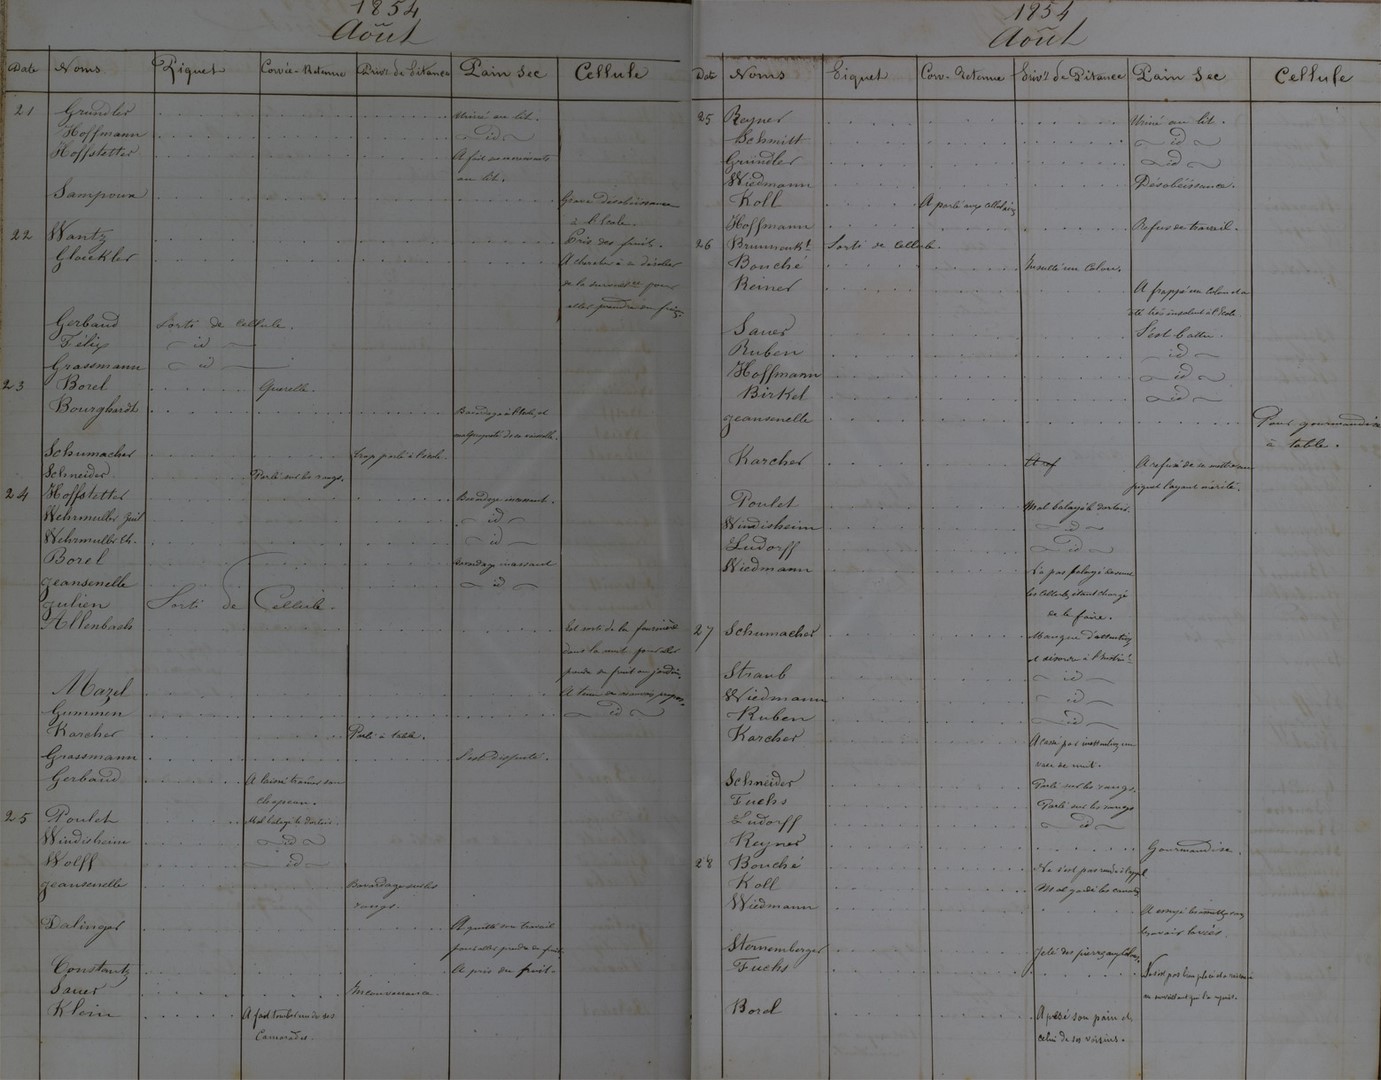 1854
Août
Date Noms Piquet Corvée-Retenue Privn de Pitance Pain Sec Cellule
21 Grundler Uriné au lit.
Hoffmann id
Hoffstetter A fait
au lit.
Sampoux Grave désobéissance
à l'Ecole.
22 Wantz Pris des fruits.
Gloeckler A cherché à
de la pour
aller prendre du fruit.
Gerbaud Sorti de Cellule.
Félix id
Grassmann id
23 Borel Querelle.
Bourghardt Bavardage à l'école, et
malpropreté de sa vaisselle.
Schumacher Trop parlé à l'école.
Schneider Parlé sur les rangs.
24 Hoffstetter Bavardage incessant.
Wehrmuller id
Wehrmuller Ch. id
Borel Bavardage incessant
Jeansenelle id
Julien Sorti de Cellule.
Allenbach Est sorti de la
dans la nuit pour aller
prendre du fruit au jardin.
Mazel A tenu de mauvais propos.
Gummen id
Karcher Parlé à table.
Grassmann S'est disputé.
Gerbaud A laissé traîner son
chapeau.
25 Poulet Mal balayé le dortoir.
Windisheim id
Wolff id
Jeansenelle Bavardage sur les
rangs.
Dalinger A quitté son travail
pour aller prendre du fruit.
Constantz A pris du fruit.
Sauer Inconvenance.
Klein A fait de ses
Camarades.
1854
Août
Date Noms Piquet Corv-Retenue Privn de Pitance Pain Sec Cellule
25 Reyner Uriné au lit.
Schmitt id
Grundler id
Wiedmann Désobéissance.
Koll A parlé aux
Hoffmann Refus de travail.
26 Sorti de Cellule.
Bouché Insulté un Colon.
Reiner A frappé un Colon et a
été très insolent à l'école
Sauer S'est battu.
Ruben id
Hoffmann id
Birkel id
Jeansenelle Pour gourmandise
à table.
Karcher A refusé de se mettre au
piquet l'ayant mérité.
Poulet Mal balayé le dortoir.
Windisheim id
Ludorff id
Wiedmann N'a pas balayé devant
les Cellules, étant chargé
de le faire.
27 Schumacher Manque d'attention
et à
Straub id
Wiedmann id
Ruben id
Karcher A cassé par un
vase de nuit.
Schneider Parlé sur les rangs.
Fuchs Parlé sur les rangs
Ludorff id
Reyner Gourmandise.
28 Bouché Ne s'est pas rendu à l'appel
Koll Mal gardé les
Wiedmann A
Sternemberger Jeté des pierres
Fuchs N'est pas
Borel A pesé son pain et
celui de ses voisins.